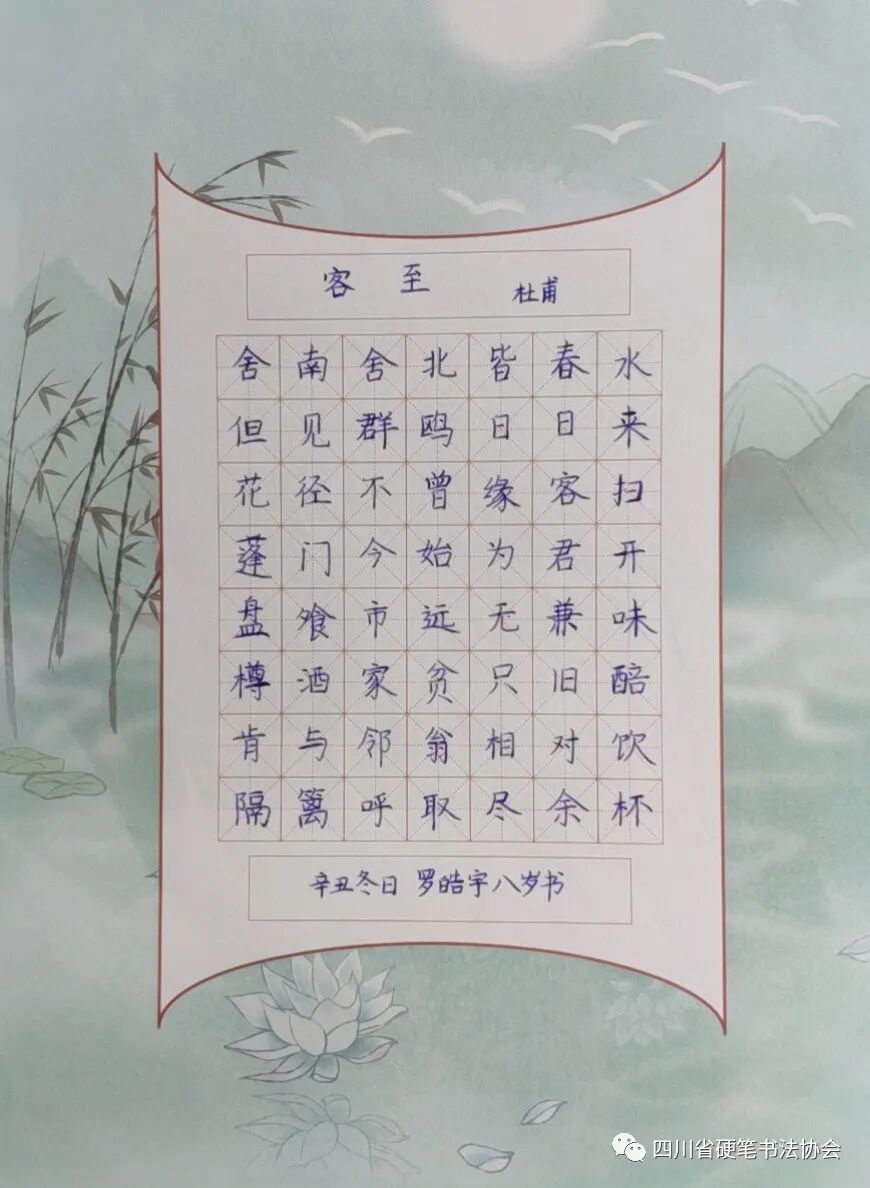 客 至 杜甫
舍南舍北皆春水
但见群鸥日日来
花径不曾缘客扫
蓬门今始为君开
盘飧市远无兼味
樽酒家贫只旧醅
肯与邻翁相对饮
隔篱呼取尽余杯
辛丑冬日 罗皓宇八岁书
四川省硬笔书法协会